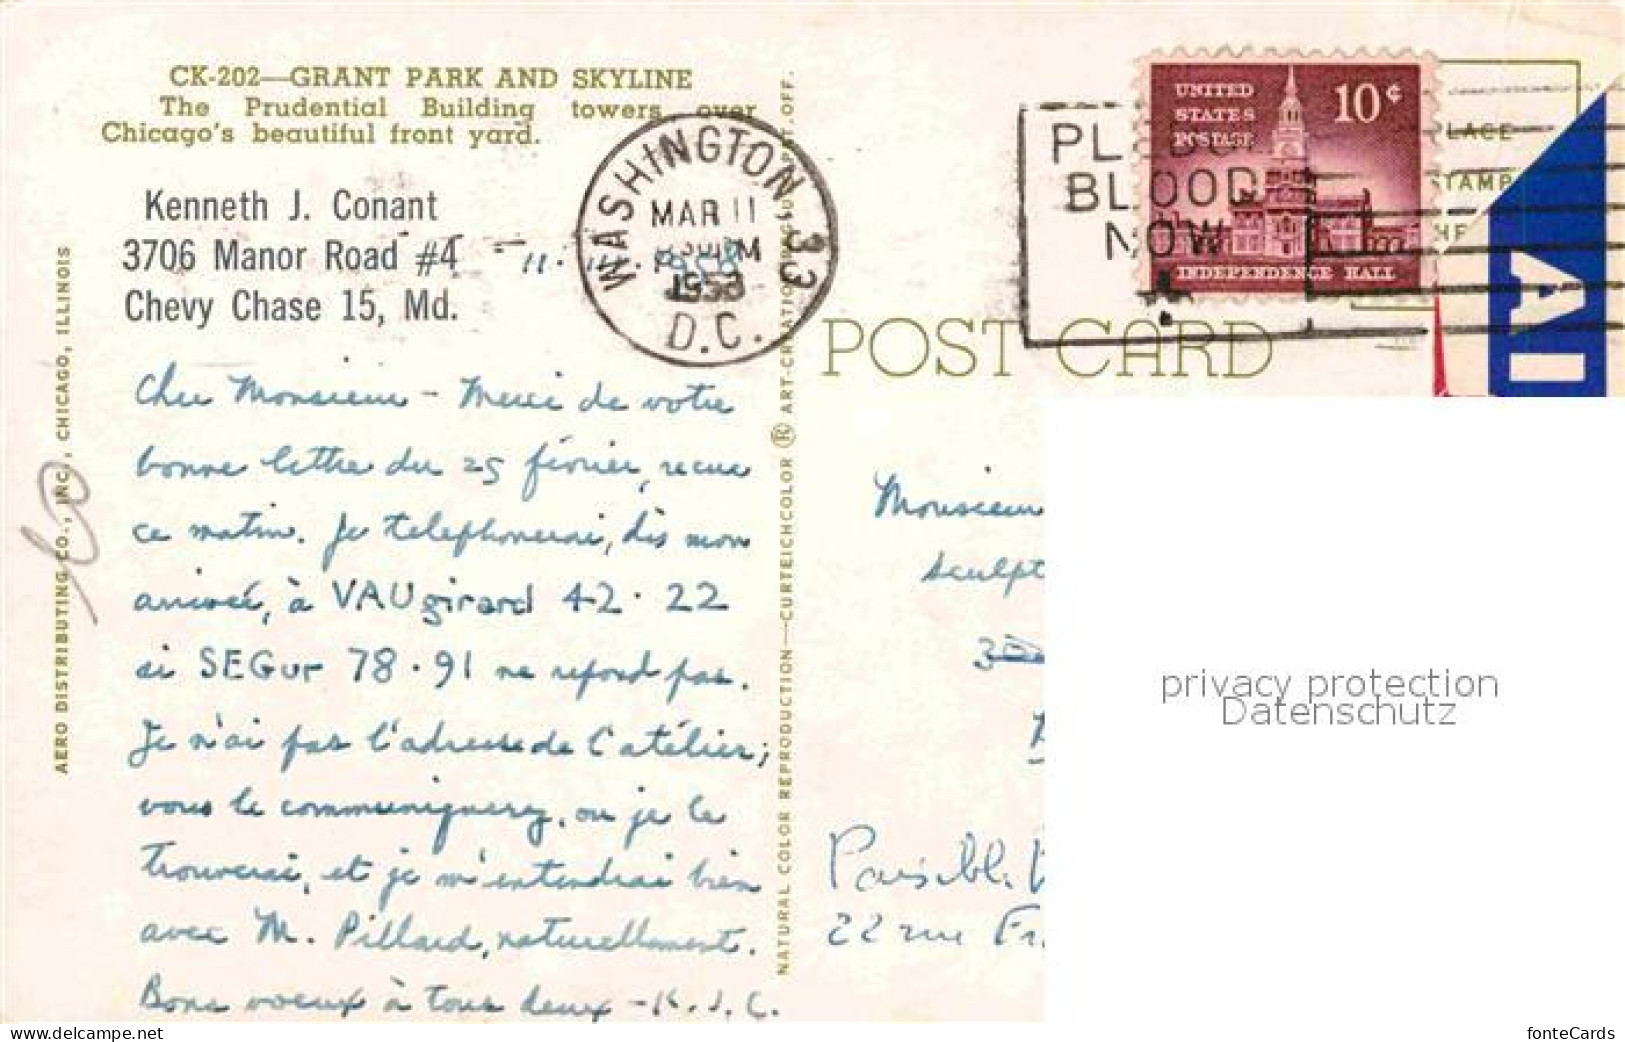 CK-202—GRANT PARK AND SKYLINE
The Prudential Building towers over
Chicago's beautiful front yard.
Kenneth J. Conant
3706 Manor Road #4
Chevy Chase 15, Md.
Cher Monsieur - Merci de votre
bonne lettre du 25 février, recue
ce matin. Je telephonerai, dès mon
arrivée, à VAUgirard 42·22
si SEGur 78·91 ne repond pas.
Je n'ai pas l'adresse de l'atélier;
vous le communiquerez, ou je le
trouverai, et je m'entendrai bien
avec M. Pillard, naturellement.
Bons voeux à tous deux - K.J.C.
AERO DISTRIBUTING CO., INC., CHICAGO, ILLINOIS
NATURAL COLOR REPRODUCTION—CURTEICHCOLOR ® ART-CREATION
WASHINGTON, 33
MAR 11
PM
1958
D.C.
BLOOD
NOW
UNITED
STATES
POSTAGE
10¢
INDEPENDENCE HALL
PLACE
STAMP
HE
POST CARD
Monsieur
sculpt
22 rue Fr
privacy protection
Datenschutz
www.delcampe.net
fonteCards